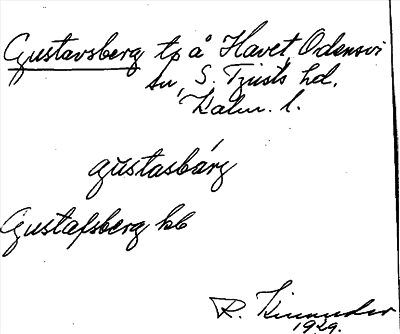 Gustavsberg tp å Havet, Odensvi
sn, S. Tjusts hd,
Kalm. l.
gustasbärg
Gustafsberg kb
R. Kinander
1929.